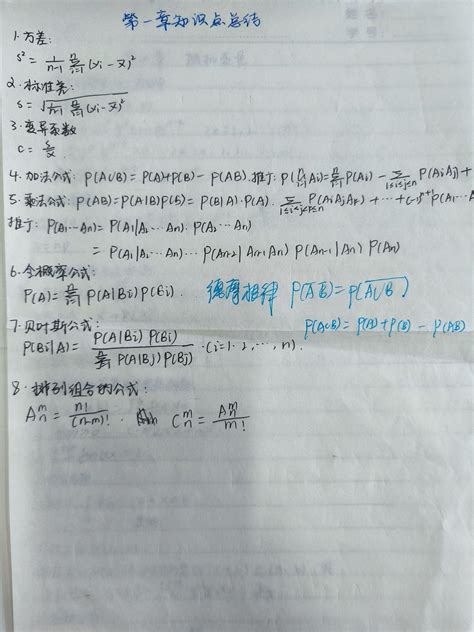 第一章知识点总结
1.方差:
s² = 1/(n-1) Σ(i=1→n) (xi - x̄)²
2.标准差:
s = √(1/(n-1) Σ(i=1→n) (xi - x̄)²)
3.变异系数
C = s/x̄.
4.加法公式: P(A∪B) = P(A)+P(B) - P(AB).推广: P(∪(i=1→n) Ai) = Σ(i=1→n) P(Ai) - Σ(1≤i≤j≤n) P(AiAj) +
5.乘法公式: P(AB) = P(A|B)P(B) = P(B|A)·P(A). Σ(1≤i≤j≤k≤n) P(AiAjAk) + ··· + (-1)ⁿ⁺¹ P(A1···A
推广: P(A1···An) = P(A1|A2···An)·P(A2···An)
= P(A1|A2···An)···P(An-2|An-1An) P(An-1|An) P(An)
6.全概率公式:
P(A) = Σ(i=1→n) P(A|Bi) P(Bi). 德摩根律 P(A̅ B̅) = P(A∪B)̅
7.贝叶斯公式: P(A∪B) = P(A) + P(B) - P(AB)
P(Bi|A) = P(A|Bi) P(Bi) / Σ(j=1→n) P(A|Bj) P(Bj) ·(i=1·2,···,n).
8.排列组合的公式:
Aₙᵐ = n!/(n-m)! . Cₙᵐ = Aₙᵐ/m!